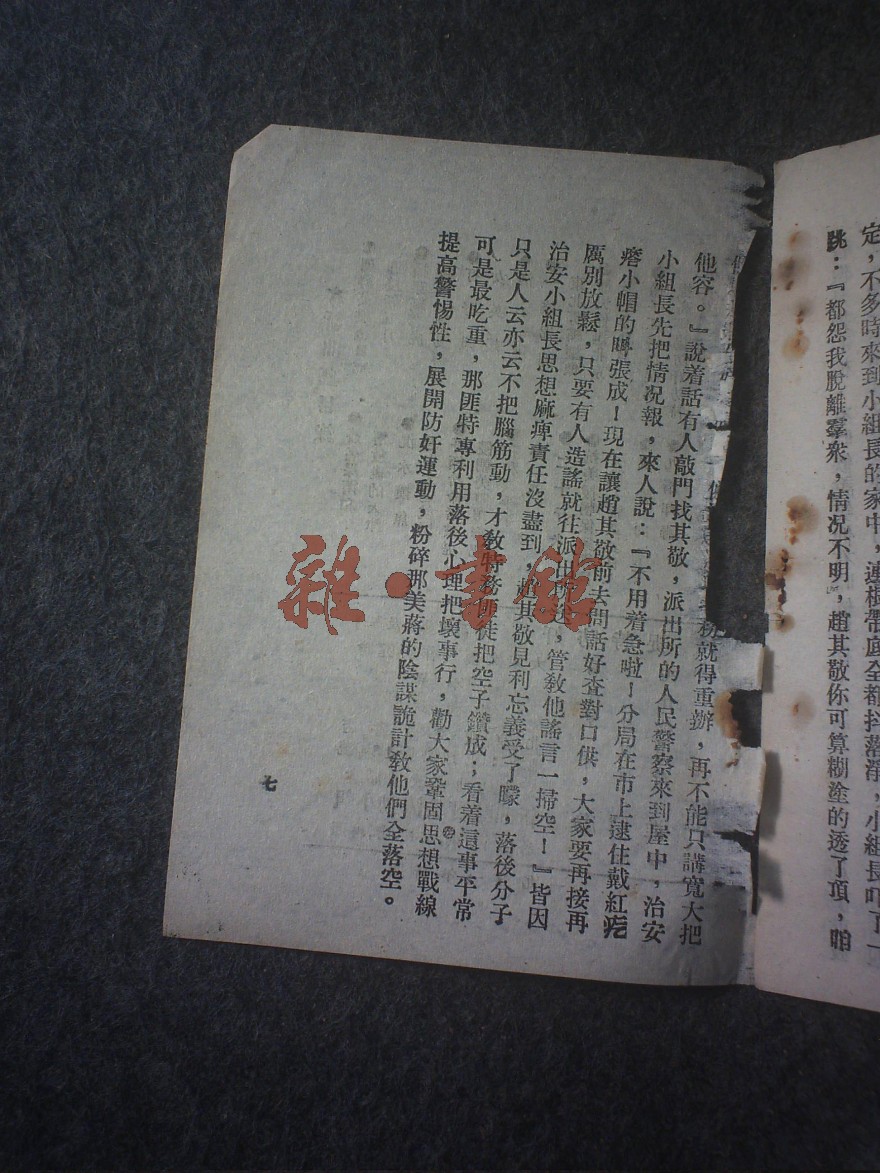 定，不多時來到小組長的家中，連根帶底全都抖落淨，小組長吓了一
跳：『都怨我脫離羣衆，情況不明』，趙其敬你可算糊塗的透了頂，咱
務就得重辦，再不能只講寬大把
他容。』說着話有人敲門找其敬，派出所的人民警察來到屋中，治安
小組長先把情況報，來人說：『不用着急啦！分局在市上逮住戴紅疙
瘩小帽的張成！現在讓趙其敬前去問話好查對口供，大家要再接再
厲別放鬆，只要有人造謠就往派出所送，管敎他謠言一掃空！』皆因
治安小組長思想麻痺責任沒盡到，趙其敬見利忘義受了矇，落後分子
只是人云亦云不把腦筋動，才敎特務匪徒把空子鑽成；看着這事平常
可是最吃重，那匪特專利用落後心理把壞事行，勸大家鞏固思想戰線
提高警惕性，展開防奸運動，粉碎那美蔣的陰謀詭計敎他們全落空。
七
雜·書館